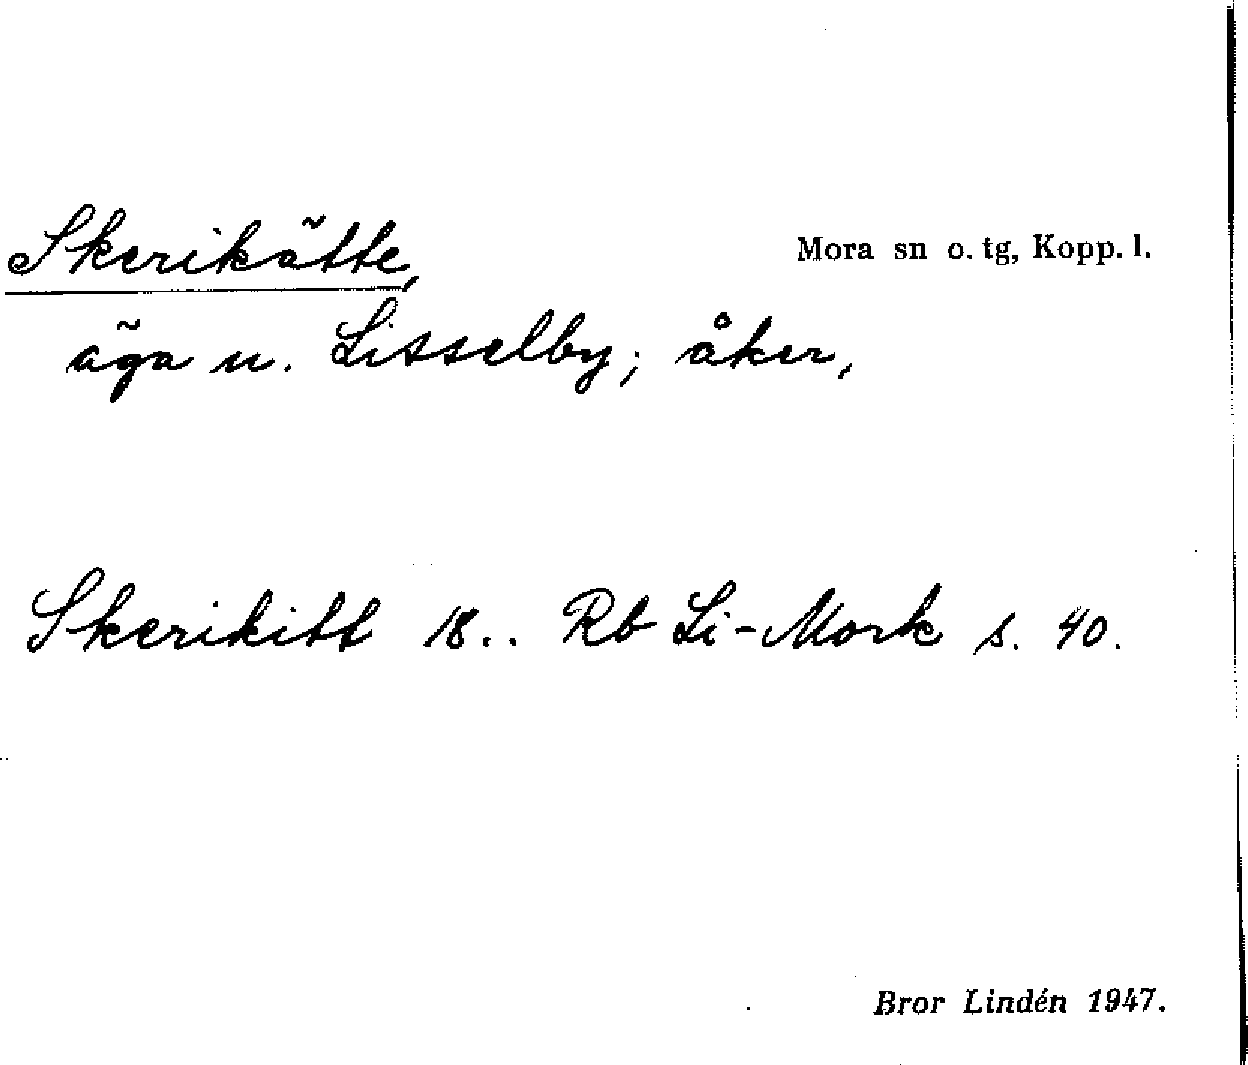 Skerikätte, Mora sn o. tg, Kopp. l.
äga u. Lisselby; åker,
Skerikitt 18.. Rb Li-Mork s. 40.
Bror Lindén 1947.